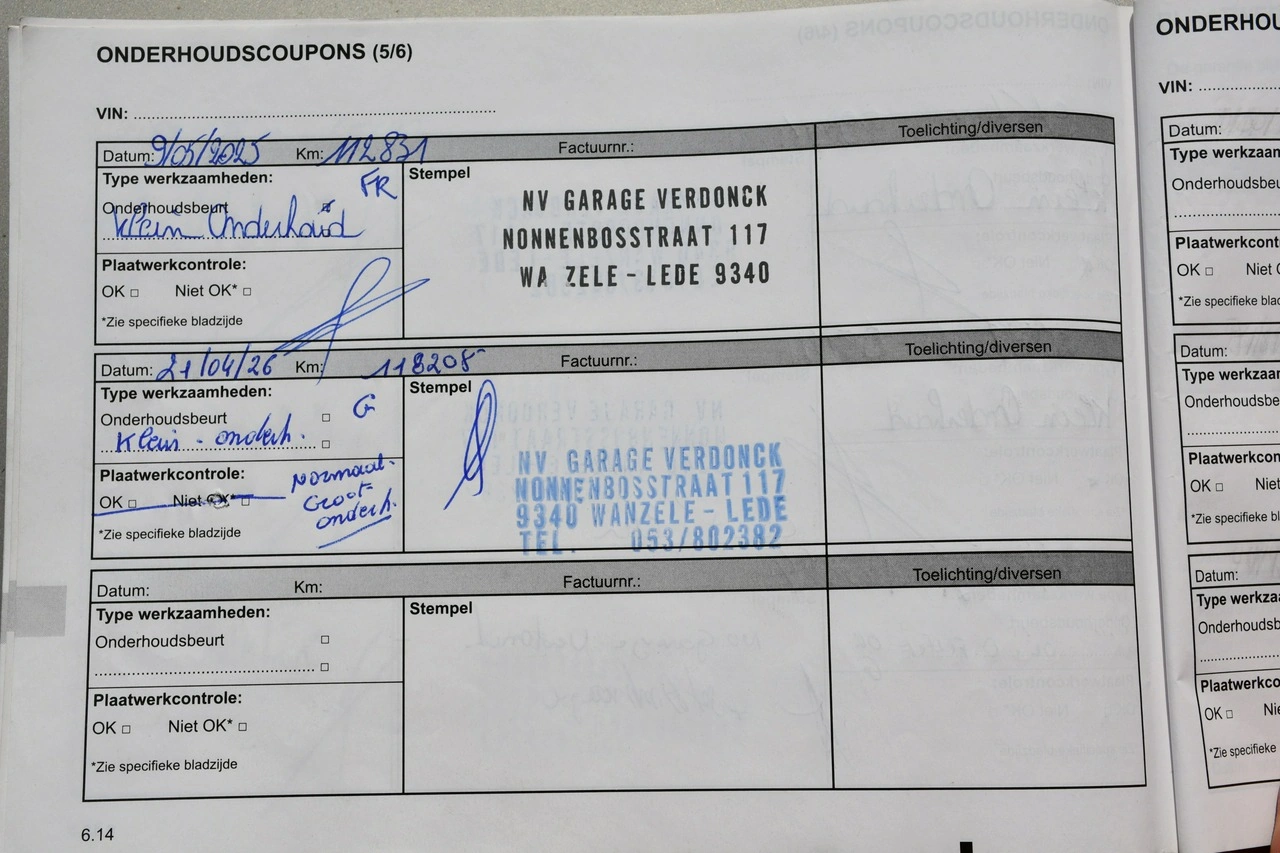 ONDERHOUDSCOUPONS (5/6)
VIN: ..........
Datum: 9/05/2025 Km: 112831 Factuurnr.: Toelichting/diversen
Type werkzaamheden: FR
Onderhoudsbeurt
Klein Onderhoud
Plaatwerkcontrole:
OK □ Niet OK* □
*Zie specifieke bladzijde
Stempel
NV GARAGE VERDONCK
NONNENBOSSTRAAT 117
WA ZELE - LEDE 9340
Datum: 21/04/26 Km: 118205 Factuurnr.: Toelichting/diversen
Type werkzaamheden:
Onderhoudsbeurt □ G
Klein - onderh. □
Plaatwerkcontrole:
OK □ Niet OK* □
Normaal-
Groot
onderh.
*Zie specifieke bladzijde
Stempel
NV GARAGE VERDONCK
NONNENBOSSTRAAT 117
9340 WANZELE - LEDE
TEL. 053/802382
Datum: Km: Factuurnr.: Toelichting/diversen
Type werkzaamheden:
Onderhoudsbeurt □
.......... □
Plaatwerkcontrole:
OK □ Niet OK* □
*Zie specifieke bladzijde
Stempel
6.14
ONDERHOU
VIN: ..........
Datum:
Type werkzaam
Onderhoudsbeu
Plaatwerkcont
OK □ Niet
*Zie specifieke blad
Datum:
Type werkzaa
Onderhoudsbe
Plaatwerkcon
OK □ Niet
*Zie specifieke bl
Datum:
Type werkza
Onderhoudsb
Plaatwerkco
OK □ Nie
*Zie specifieke